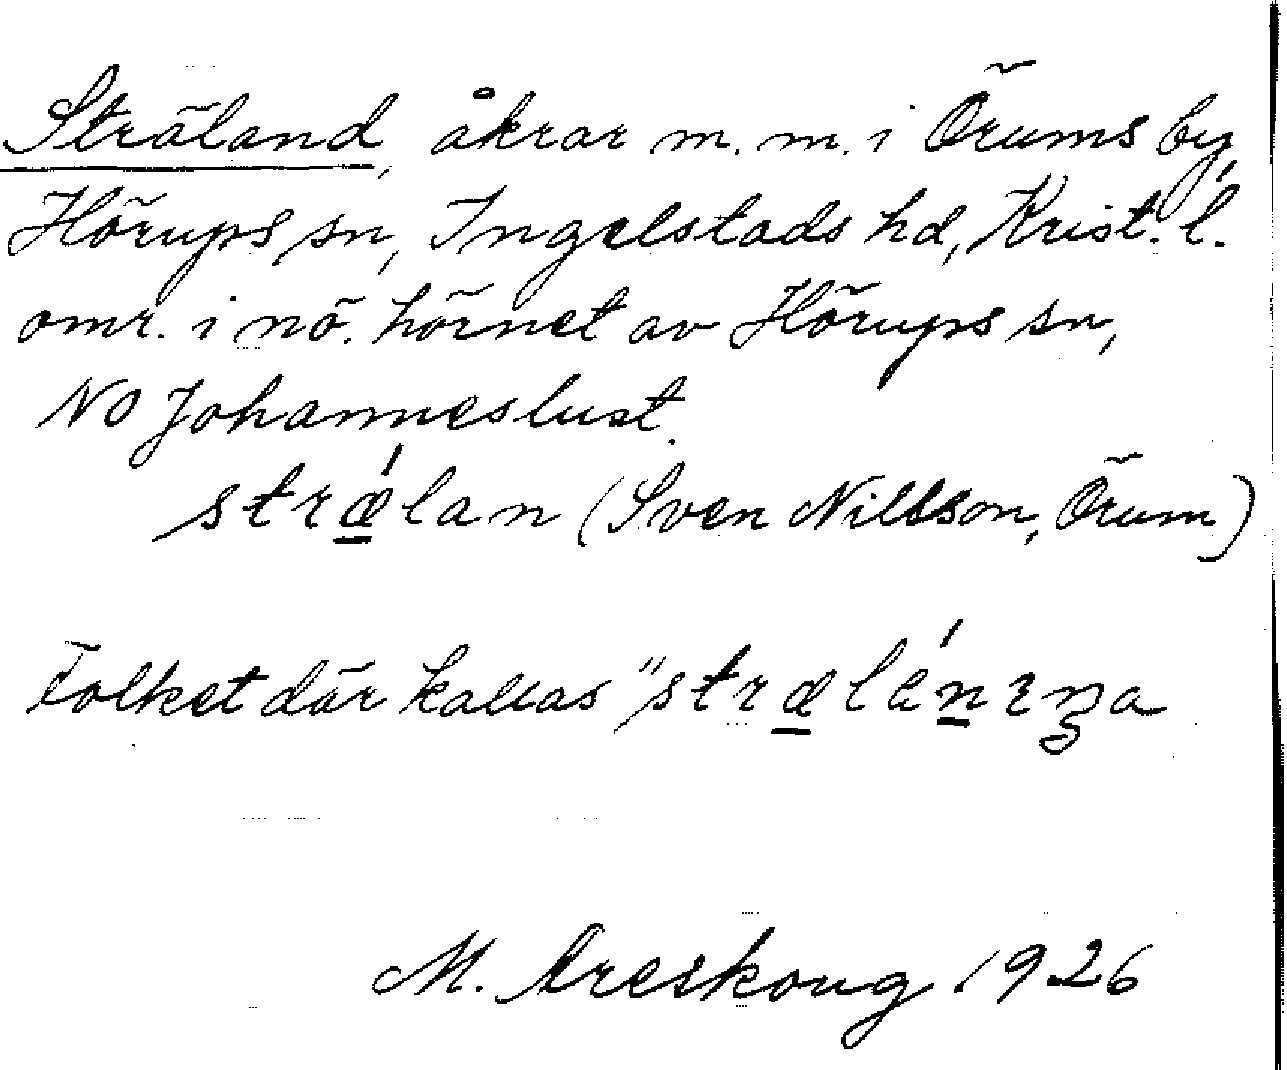 Sträland, åkrar m. m. i Örums by,
Hörups sn, Ingelstads hd, Krist. l.
omr. i nö. hörnet av Hörups sn,
NO Johanneslust.
strǽlan (Sven Nilsson, Örum)
Folket där kallas "strælénıŋa
M. Areskoug 1926